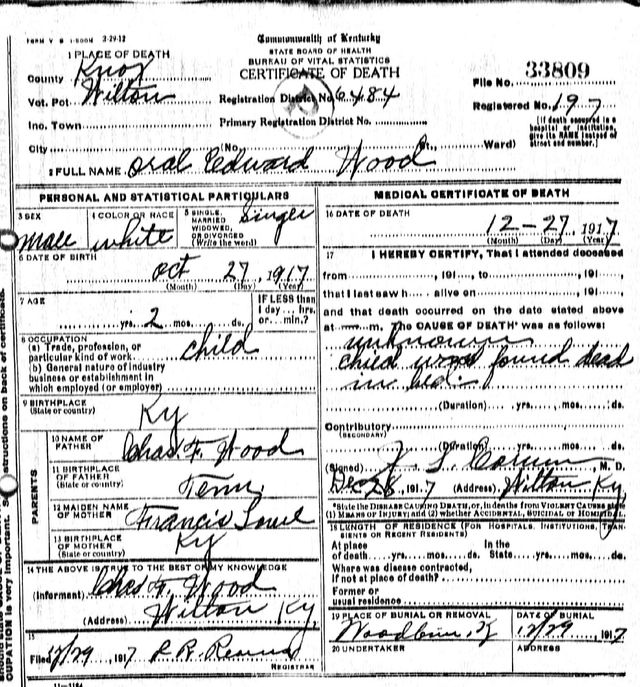 FORM V S 1-500M 3-29-12
Commonwealth of Kentucky
STATE BOARD OF HEALTH
BUREAU OF VITAL STATISTICS
CERTIFICATE OF DEATH
1 PLACE OF DEATH
County Knox
Vot. Pct Wilton
Inc. Town
City (No. St., Ward)
File No. 33809
Registration District No. 6484
Registered No. 197
Primary Registration District No.
[If death occurred in a hospital or institution, give its NAME instead of street and number.]
2 FULL NAME Oral Edward Wood
PERSONAL AND STATISTICAL PARTICULARS
3 SEX male
4 COLOR OR RACE white
5 SINGLE, MARRIED, WIDOWED, OR DIVORCED (Write the word)
6 DATE OF BIRTH
Oct 27, 1917
(Month) (Day) (Year)
7 AGE
yrs. 2 mos. ds.
IF LESS than 1 day hrs. or min.?
8 OCCUPATION
(a) Trade, profession, or particular kind of work child
(b) General nature of industry
business or establishment in
which employed (or employer)
9 BIRTHPLACE
(State or country) Ky
PARENTS
10 NAME OF FATHER Chas. F. Wood
11 BIRTHPLACE OF FATHER
(State or country) Tenn
12 MAIDEN NAME OF MOTHER Francis
13 BIRTHPLACE OF MOTHER
(State or country) Ky
14 THE ABOVE IS TO THE BEST OF MY KNOWLEDGE
(Informant) Chas F. Wood
(Address) Wilton Ky.
15
Filed 12/29 1917 P. R.
REGISTRAR
11-1184
MEDICAL CERTIFICATE OF DEATH
16 DATE OF DEATH
12-27 1917
(Month) (Day) (Year)
17 I HEREBY CERTIFY, That I attended deceased
from , 191 , to , 191 ,
that I last saw h alive on , 191 ,
and that death occurred on the date stated above
at m. The CAUSE OF DEATH* was as follows:
unknown
child was found dead
in bed.
(Duration) yrs. mos. ds.
Contributory
(SECONDARY)
(Duration) yrs. mos. ds.
(Signed) M. D.
Dec 28, 1917 (Address) Wilton Ky
*State the DISEASE CAUSING DEATH, or, in deaths from VIOLENT CAUSES state
(1) MEANS OF INJURY; and (2) whether ACCIDENTAL, SUICIDAL or HOMICIDAL
18 LENGTH OF RESIDENCE (FOR HOSPITALS, INSTITUTIONS, TRANSIENTS OR RECENT RESIDENTS)
At place of death yrs. mos. ds. In the State yrs. mos. ds.
Where was disease contracted,
if not at place of death?
Former or
usual residence
19 PLACE OF BURIAL OR REMOVAL
DATE OF BURIAL
12/29 1917
20 UNDERTAKER
ADDRESS